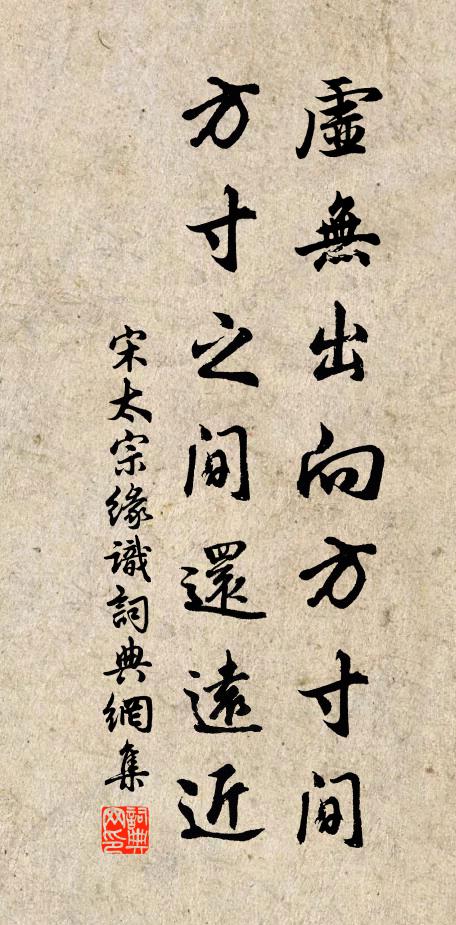 虛無出向方寸間
方寸之間還遠近
宋太宗緣識詞典網集
詞典网印